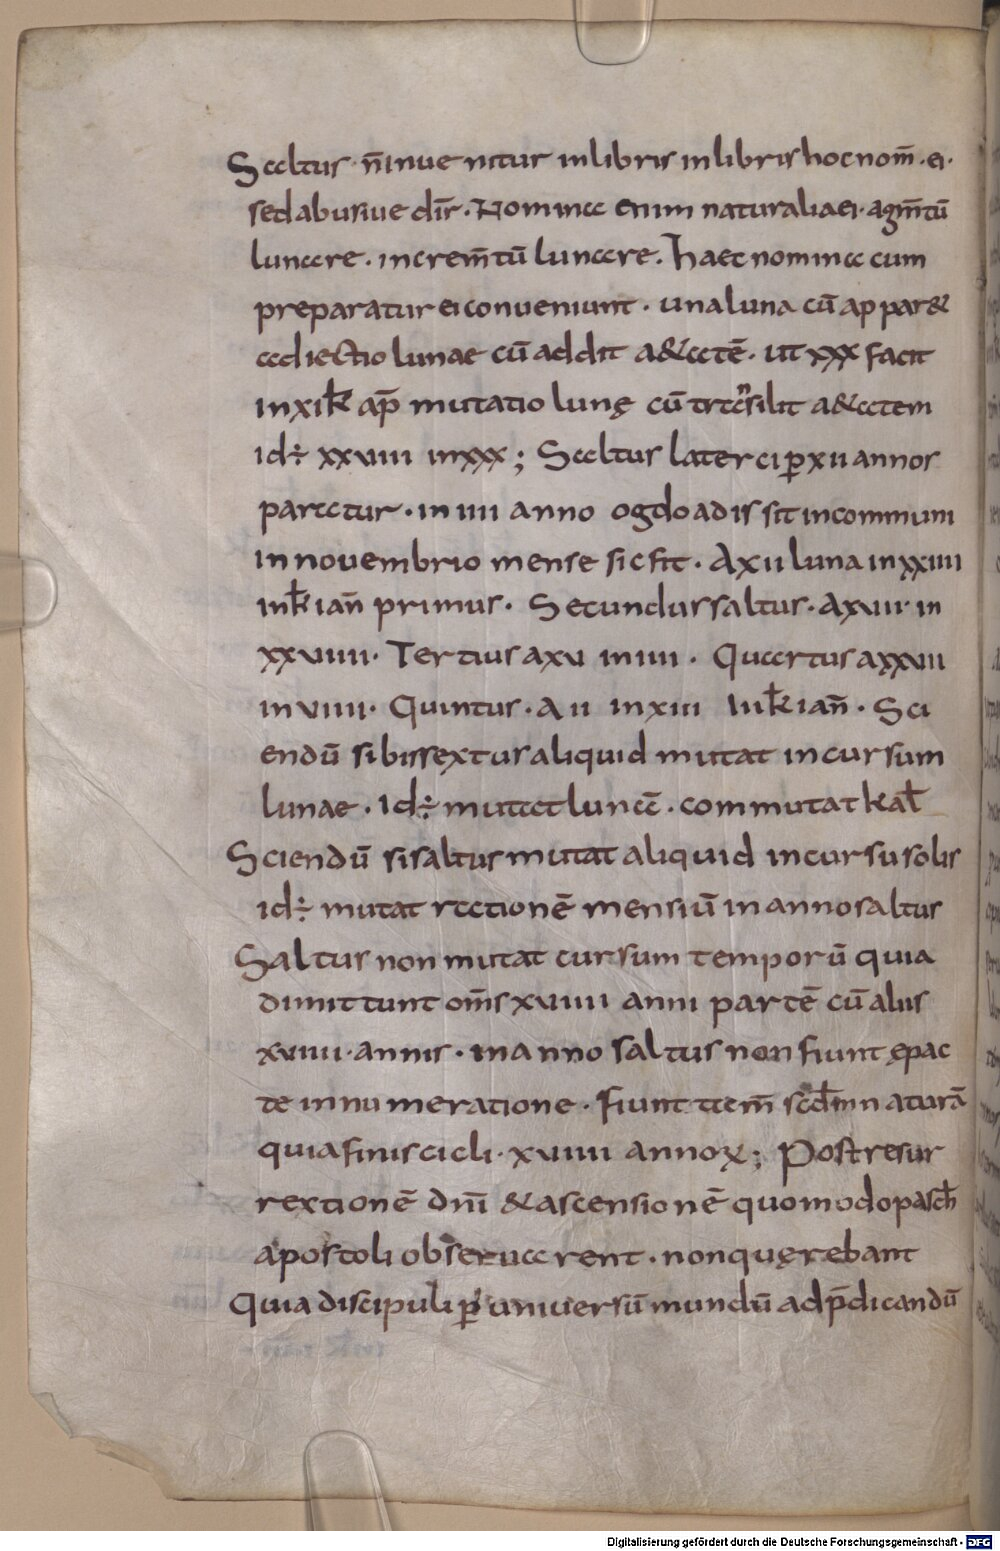 Saltus n̄ inuenitur in libris in libris hoc nom̄ · ei ·
sed abusiue dīr · Nomina enim naturalia ei · agm̄tū
lunare · increm̄tū lunare · haec nomina cum
preparatur ei conueniunt · una luna cū appar&
adiectio lunae cū addit a&atē · ut xxx facit
in xi kł ap̄ mutatio lunę cū transilit a&atem
id÷ xxviiii in xxx ; Saltus later ei ꝑ xii annos
paratur · in iiii anno ogdoadis sit in communi
in nouembrio mense sic fit · A xii luna in xxiiii
in kł iañ primus · Secundus saltus · A xviii · in
xxviiii · Tertius a xv in iiii · Quartus a xxvii
in viiii · Quintus · A ii in xiii in kł iañ · Sci
endū si bissextus aliquid mutat in cursum
lunae · Id÷ mutat lunā · commutat kał
Sciendū si saltus mutat aliquid in cursu solis
id÷ mutat rationē mensiū in anno saltus
Saltus non mutat cursum temporū quia
dimittunt om̄s xviiii anni partē cū aliis
xviiii · annis · in anno saltus non fiunt ępac
te in numeratione · fiunt tam̄ scđm naturā
quia finis cicli · xviiii annoꝝ ; Post resur
rextionē dn̄i & ascensionē quomodo pasch̄
apostoli obseruarent · non quęrebant
Quia discipuli ꝑ uniuersū mundū ad p̄dicandū
Digitalisierung gefördert durch die Deutsche Forschungsgemeinschaft - DFG